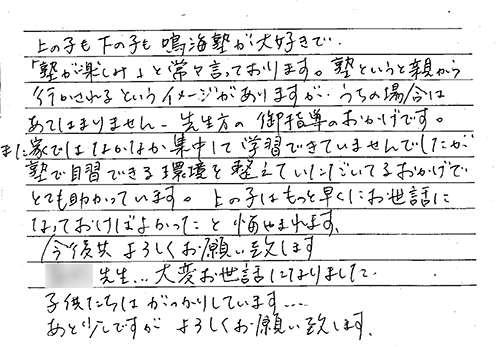 上の子も下の子も鳴海塾が大好きで、
「塾が楽しみ」と常々言っております。塾というと親から
行かされるというイメージがありますが、うちの場合は
あてはまりません。先生方の御指導のおかげです。
また家ではなかなか集中して学習できていませんでしたが
塾で自習できる環境を整えていただいてるおかげで
とても助かっています。上の子はもっと早くにお世話に
なっておけばよかったと悔やまれます。
今後共よろしくお願い致します
先生…大変お世話になりました。
子供たちはがっかりしています…
あと少しですがよろしくお願い致します。